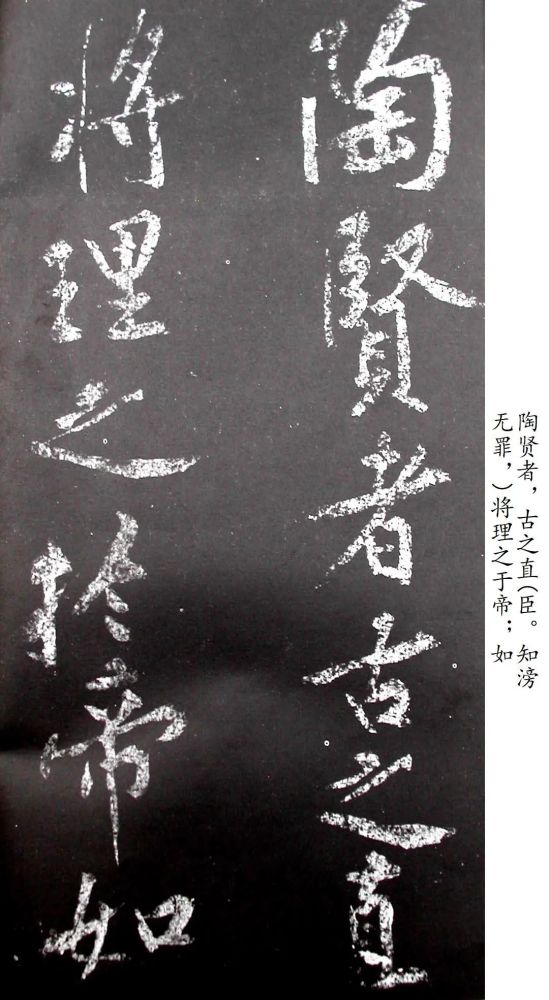 陶賢者古之直
将理之於帝如
陶贤者，古之直(臣。知滂
无罪，)将理之于帝；如